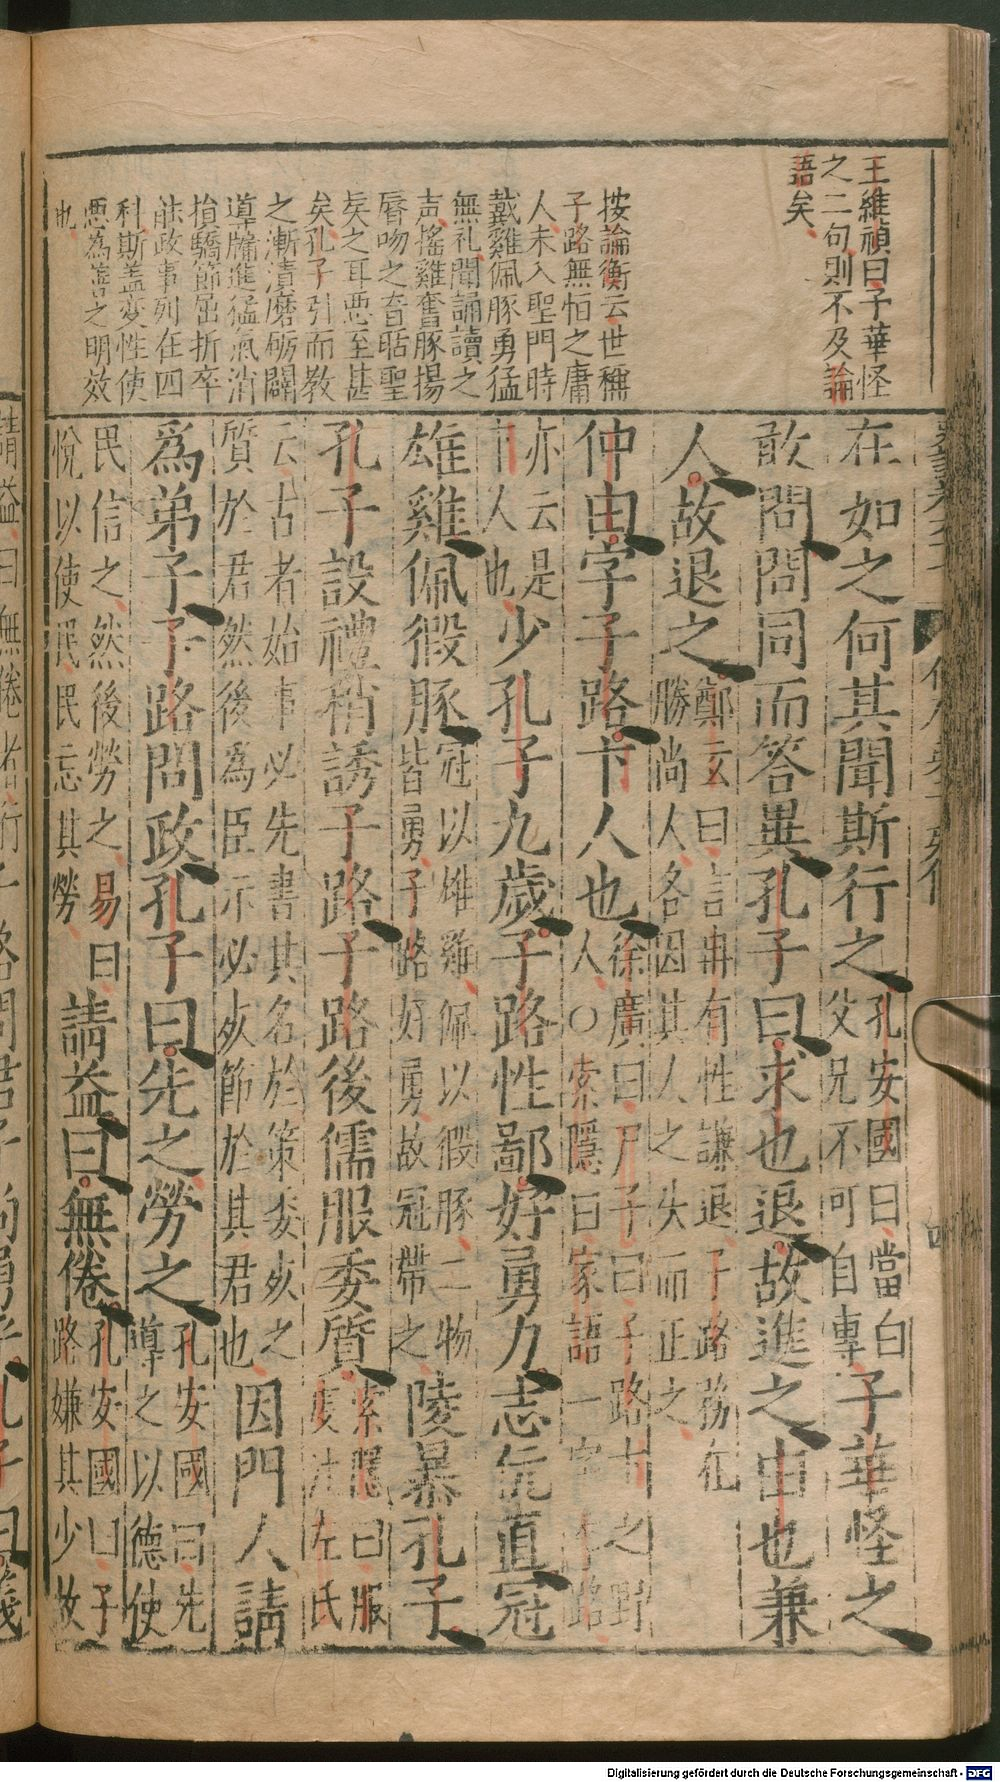 王維禎曰子華怪
之二句則不及論
語矣
按論衡云世稱
子路無恒之庸
人未入聖門時
戴雞佩豚勇猛
無礼聞誦讀之
声搖雞奮豚揚
唇吻之音聒聖
矣之耳惡至甚
矣孔子引而教
之漸漬磨砺闢
導牖進猛氣消
損驕節屈折卒
能政事列在四
科斯盖变性使
惡為善之明效
也
在如之何其聞斯行之
孔安國曰當白
父兄不可自專
子華怪之
敢問問同而答異孔子曰求也退故進之由也兼
人故退之
鄭玄曰言冉有性謙退子路務在
勝尚人各因其人之失而正之
仲由字子路卞人也
徐廣曰尸子曰子路卞之野
人○索隱曰家語一字季路
亦云是
卞人也
少孔子九歲子路性鄙好勇力志伉直冠
雄雞佩豭豚
冠以雄雞佩以豭豚二物
皆勇子路好勇故冠帶之
陵暴孔子
孔子設禮稍誘子路子路後儒服委質
索隱曰服
虔注左氏
云古者始事必先書其名於策委死之
質於君然後為臣示必死節於其君也
因門人請
為弟子子路問政孔子曰先之勞之
孔安國曰先
導之以德使
民信之然後勞之易曰
悅以使民民忘其勞
請益曰無倦
孔安國曰子
路嫌其少故
請益曰無倦者行
Digitalisierung gefördert durch die Deutsche Forschungsgemeinschaft - DFG